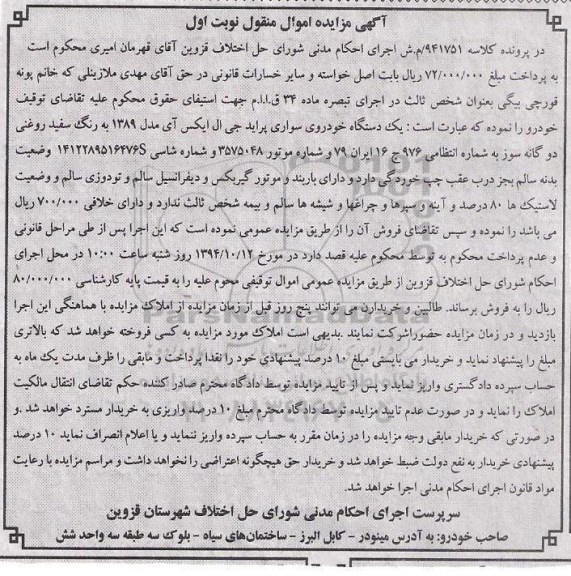 آگهی مزایده اموال منقول نوبت اول
در پرونده کلاسه ۹۴۱۷۵۱/م.ش اجرای احکام مدنی شورای حل اختلاف قزوین آقای قهرمان امیری محکوم است
به پرداخت مبلغ ۷۲/۰۰۰/۰۰۰ ریال بابت اصل خواسته و سایر خسارات قانونی در حق آقای مهدی ملازینلی که خانم پونه
قورچی بیگی بعنوان شخص ثالث در اجرای تبصره ماده ۳۴ ق.ا.ا.م جهت استیفای حقوق محکوم علیه تقاضای توقیف
خودرو را نموده که عبارت است : یک دستگاه خودروی سواری پراید جی ال ایکس آی مدل ۱۳۸۹ به رنگ سفید روغنی
دو گانه سوز به شماره انتظامی ۹۷۶ ج ۱۶ ایران ۷۹ و شماره موتور ۳۵۷۵۰۴۸ و شماره شاسی S۱۴۱۲۲۸۹۵۱۶۴۷۶ وضعیت
بدنه سالم بجز درب عقب چپ خوردگی دارد و دارای باربند و موتور گیربکس و دیفرانسیل سالم و تودوزی سالم و وضعیت
لاستیک ها ۸۰ درصد و آینه و سپرها و چراغها و شیشه ها سالم و بیمه شخص ثالث ندارد و دارای خلافی ۷۰۰/۰۰۰ ریال
می باشد را نموده و سپس تقاضای فروش آن را از طریق مزایده عمومی نموده است که این اجرا پس از طی مراحل قانونی
و عدم پرداخت محکوم به توسط محکوم علیه قصد دارد در مورخ ۱۳۹۴/۱۰/۱۲ روز شنبه ساعت ۱۰:۰۰ در محل اجرای
احکام شورای حل اختلاف قزوین از طریق مزایده عمومی اموال توقیفی محوم علیه را به قیمت پایه کارشناسی ۸۰/۰۰۰/۰۰۰
ریال را به فروش برساند. طالبین و خریداران می توانند پنج روز قبل از زمان مزایده از املاک مزایده با هماهنگی این اجرا
بازدید و در زمان مزایده حضوراشرکت نمایند .بدیهی است املاک مورد مزایده به کسی فروخته خواهد شد که بالاتری
مبلغ را پیشنهاد نماید و خریدار می بایستی مبلغ ۱۰ درصد پیشنهادی خود را نقدا پرداخت و مابقی را ظرف مدت یک ماه به
حساب سپرده دادگستری واریز نماید و پس از تایید مزایده توسط دادگاه محترم صادر کننده حکم تقاضای انتقال مالکیت
املاک را نماید و در صورت عدم تایید مزایده توسط دادگاه محترم مبلغ ۱۰ درصد واریزی به خریدار مسترد خواهد شد .و
در صورتی که خریدار مابقی وجه مزایده را در زمان مقرر به حساب سپرده واریز ننماید و یا اعلام انصراف نماید ۱۰ درصد
پیشنهادی خریدار به نفع دولت ضبط خواهد شد و خریدار حق هیچگونه اعتراضی را نخواهد داشت و مراسم مزایده با رعایت
مواد قانون اجرای احکام مدنی اجرا خواهد شد.
سرپرست اجرای احکام مدنی شورای حل اختلاف شهرستان قزوین
صاحب خودرو: به آدرس مینودر - کابل البرز - ساختمان‌های سیاه - بلوک سه طبقه سه واحد شش